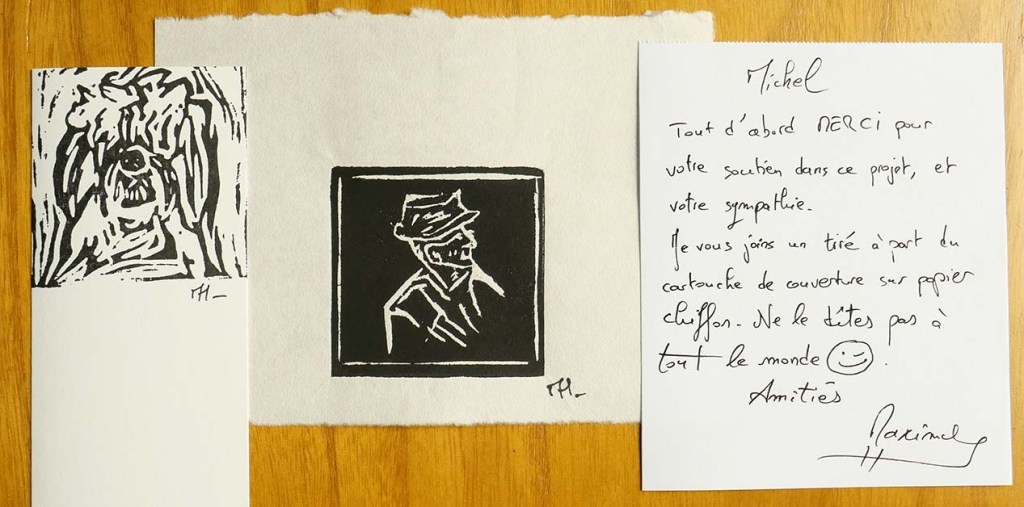 MH_
MH_
Michel
Tout d'abord MERCI pour
votre soutien dans ce projet, et
votre sympathie.
Je vous joins un tiré à part du
cartouche de couverture sur papier
chiffon. Ne le dîtes pas à
tout le monde 😉.
Amitiés
Maxime